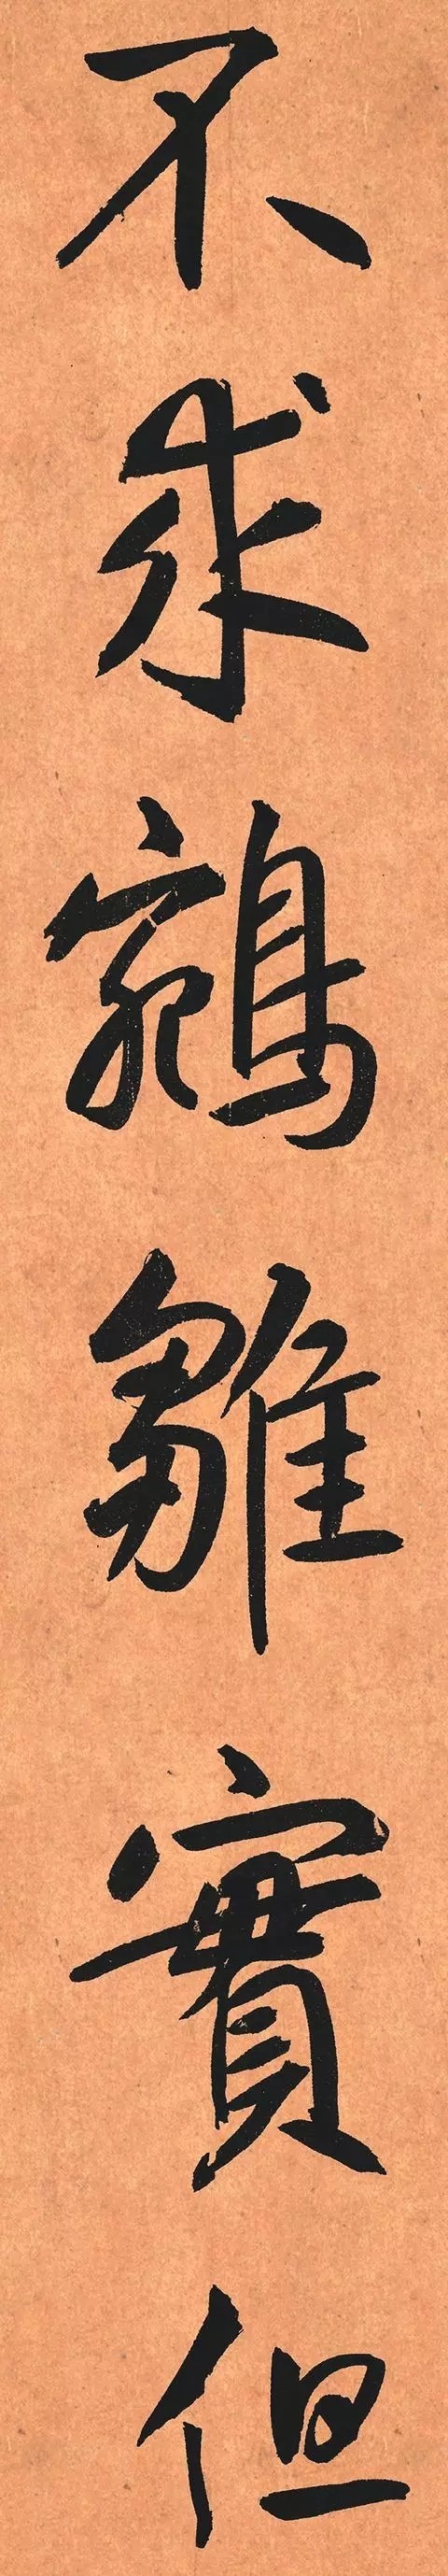 不求鵷雛實但